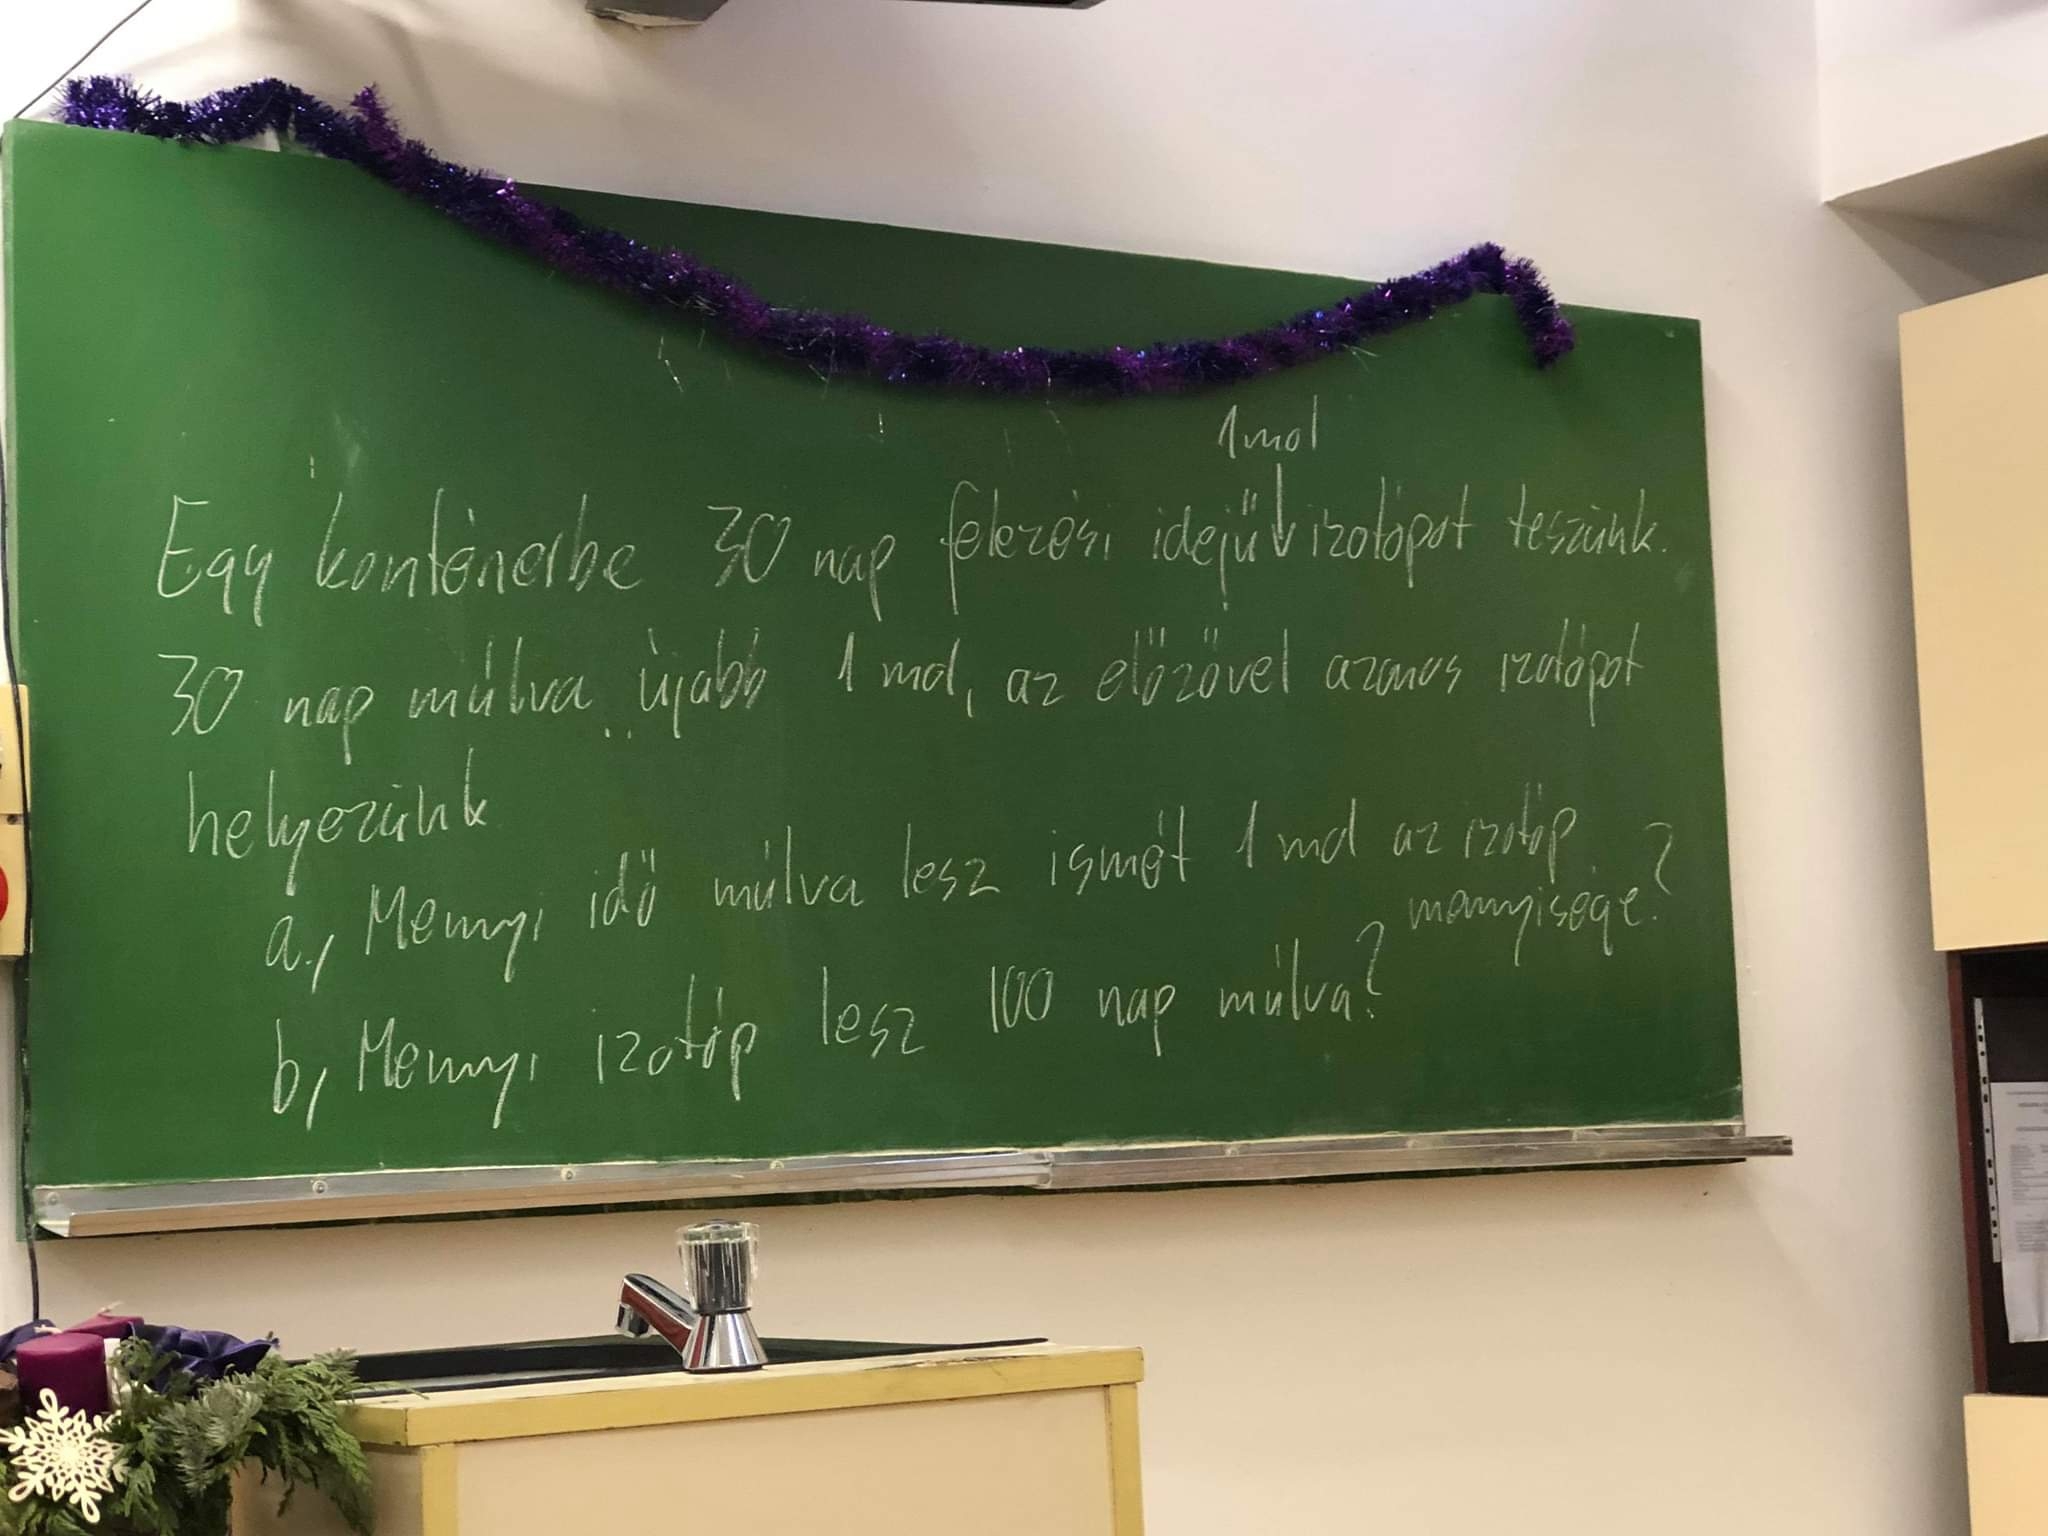 1 mol
Egy konténerbe 30 nap felezési idejű ↓ izotópot teszünk.
30 nap múlva újabb 1 mol, az előzővel azonos izotópot
helyezünk
a., Mennyi idő múlva lesz ismét 1 mol az izotóp
mennyisége?
b, Mennyi izotóp lesz 100 nap múlva?